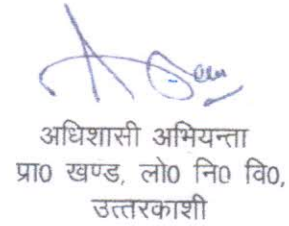 अधिशासी अभियन्ता
प्रा0 खण्ड, लो0 नि0 वि0,
उत्तरकाशी